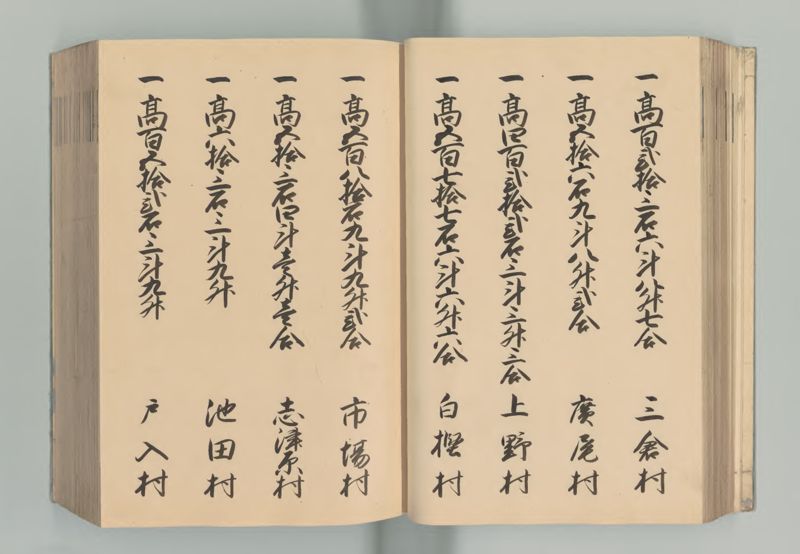 一高百弐拾三石六斗八升七合 三倉村
一高五拾六石九斗八升弐合 廣尾村
一高四百弐拾弐石三斗三升三合 上野村
一高五百七拾七石六斗六升六合 白樫村
一高五百八拾石九斗九升弐合 市場村
一高五拾三石四斗壱升壱合 志津原村
一高六拾三石三斗九升 池田村
一高百五拾弐石三斗九升 戸入村